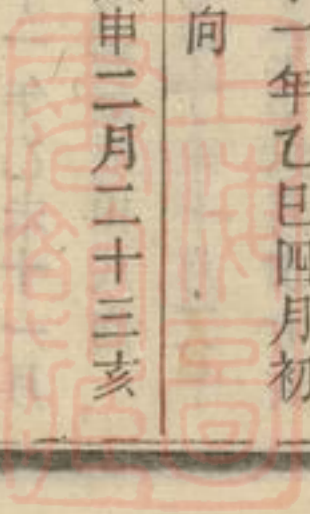 一年乙巳四月初
向
申二月二十三亥